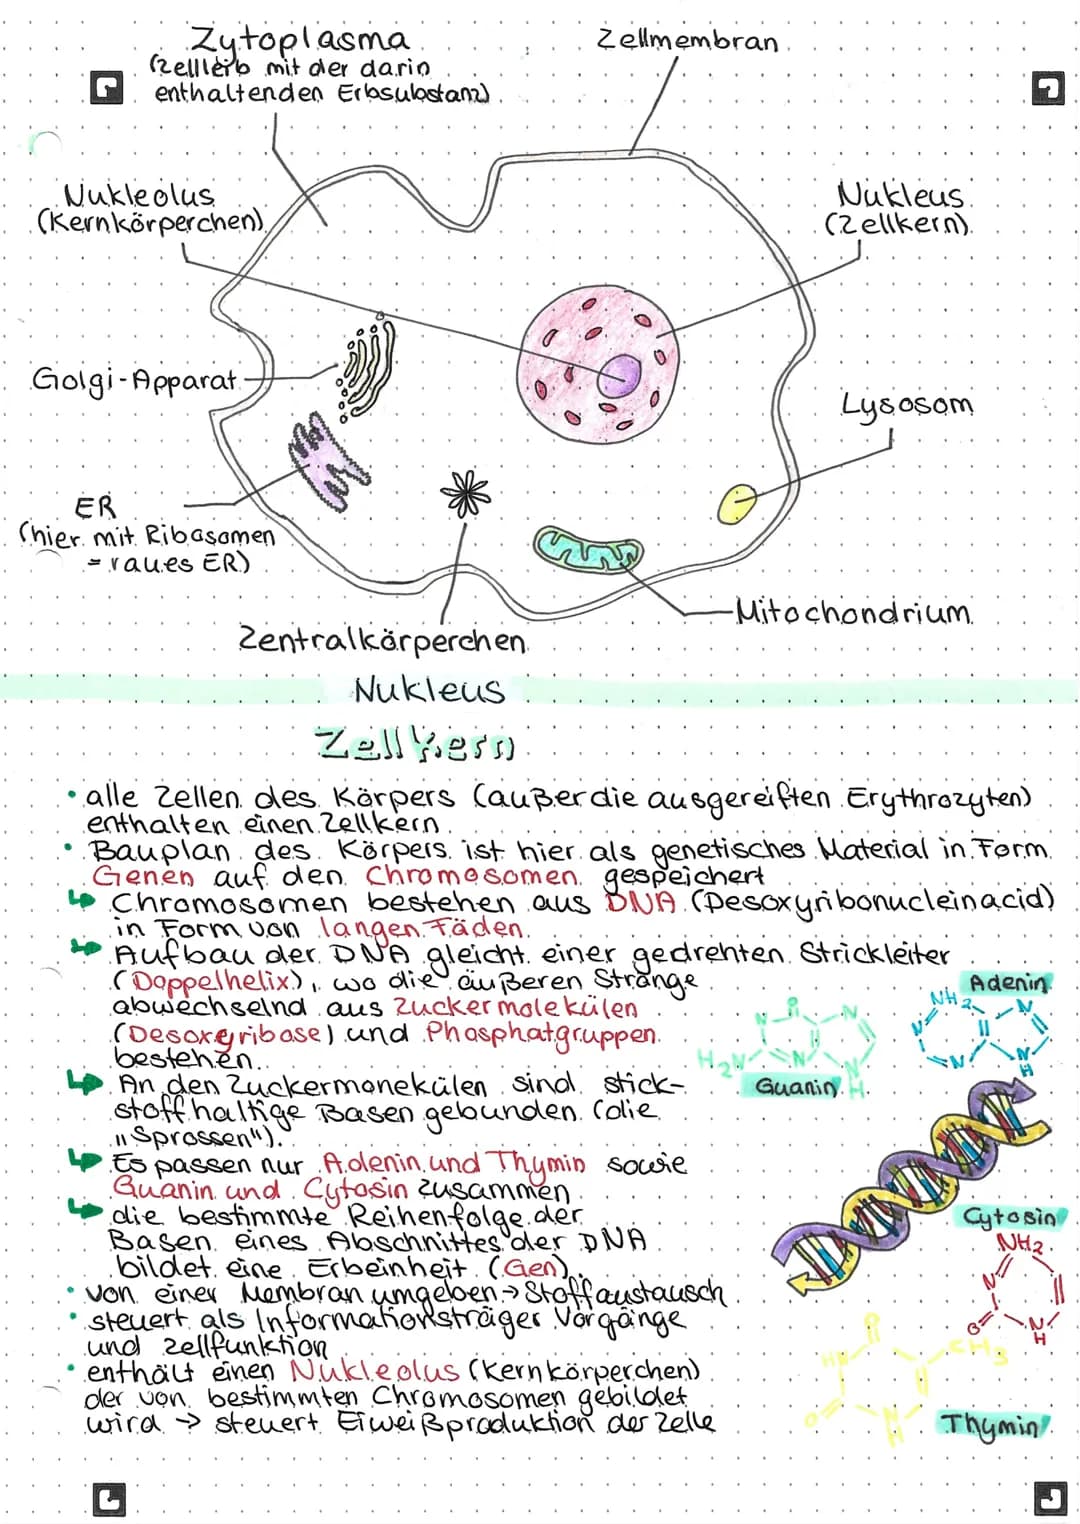 Zytoplasma
(Zellleib mit der darin
enthaltenden Erbsubstanz)
Zellmembran
Nukleolus
(Kernkörperchen)
Nukleus
(Zellkern)
Golgi-Apparat
Lysosom
ER
(hier mit Ribosomen
= raues ER)
Zentralkörperchen
Mitochondrium
Nukleus
Zellkern
• alle Zellen des Körpers (außer die ausgereiften Erythrozyten)
enthalten einen Zellkern
• Bauplan des Körpers ist hier als genetisches Material in Form
Genen auf den Chromosomen gespeichert
↳ Chromosomen bestehen aus DNA (Desoxyribonucleinacid)
in Form von langen Fäden
↳ Aufbau der DNA gleicht einer gedrehten Strickleiter
(Doppelhelix), wo die äußeren Stränge
abwechselnd aus Zuckermolekülen
(Desoxyribose) und Phosphatgruppen
bestehen.
↳ An den Zuckermonekülen sind stick-
stoffhaltige Basen gebunden (die
"Sprossen").
↳ Es passen nur Adenin und Thymin sowie
Guanin und Cytosin zusammen
↳ die bestimmte Reihenfolge der
Basen eines Abschnittes der DNA
bildet eine Erbeinheit (Gen).
• von einer Membran umgeben → Stoffaustausch
• steuert als Informationsträger Vorgänge
und Zellfunktion
• enthält einen Nukleolus (Kernkörperchen)
der von bestimmten Chromosomen gebildet
wird → steuert Eiweißproduktion der Zelle
Adenin
NH2
N
N
N
N
H
O
N
N
H2N
N
N
H
Guanin
Cytosin
NH2
N
O
N
H
O
HN
CH3
O
N
H
Thymin